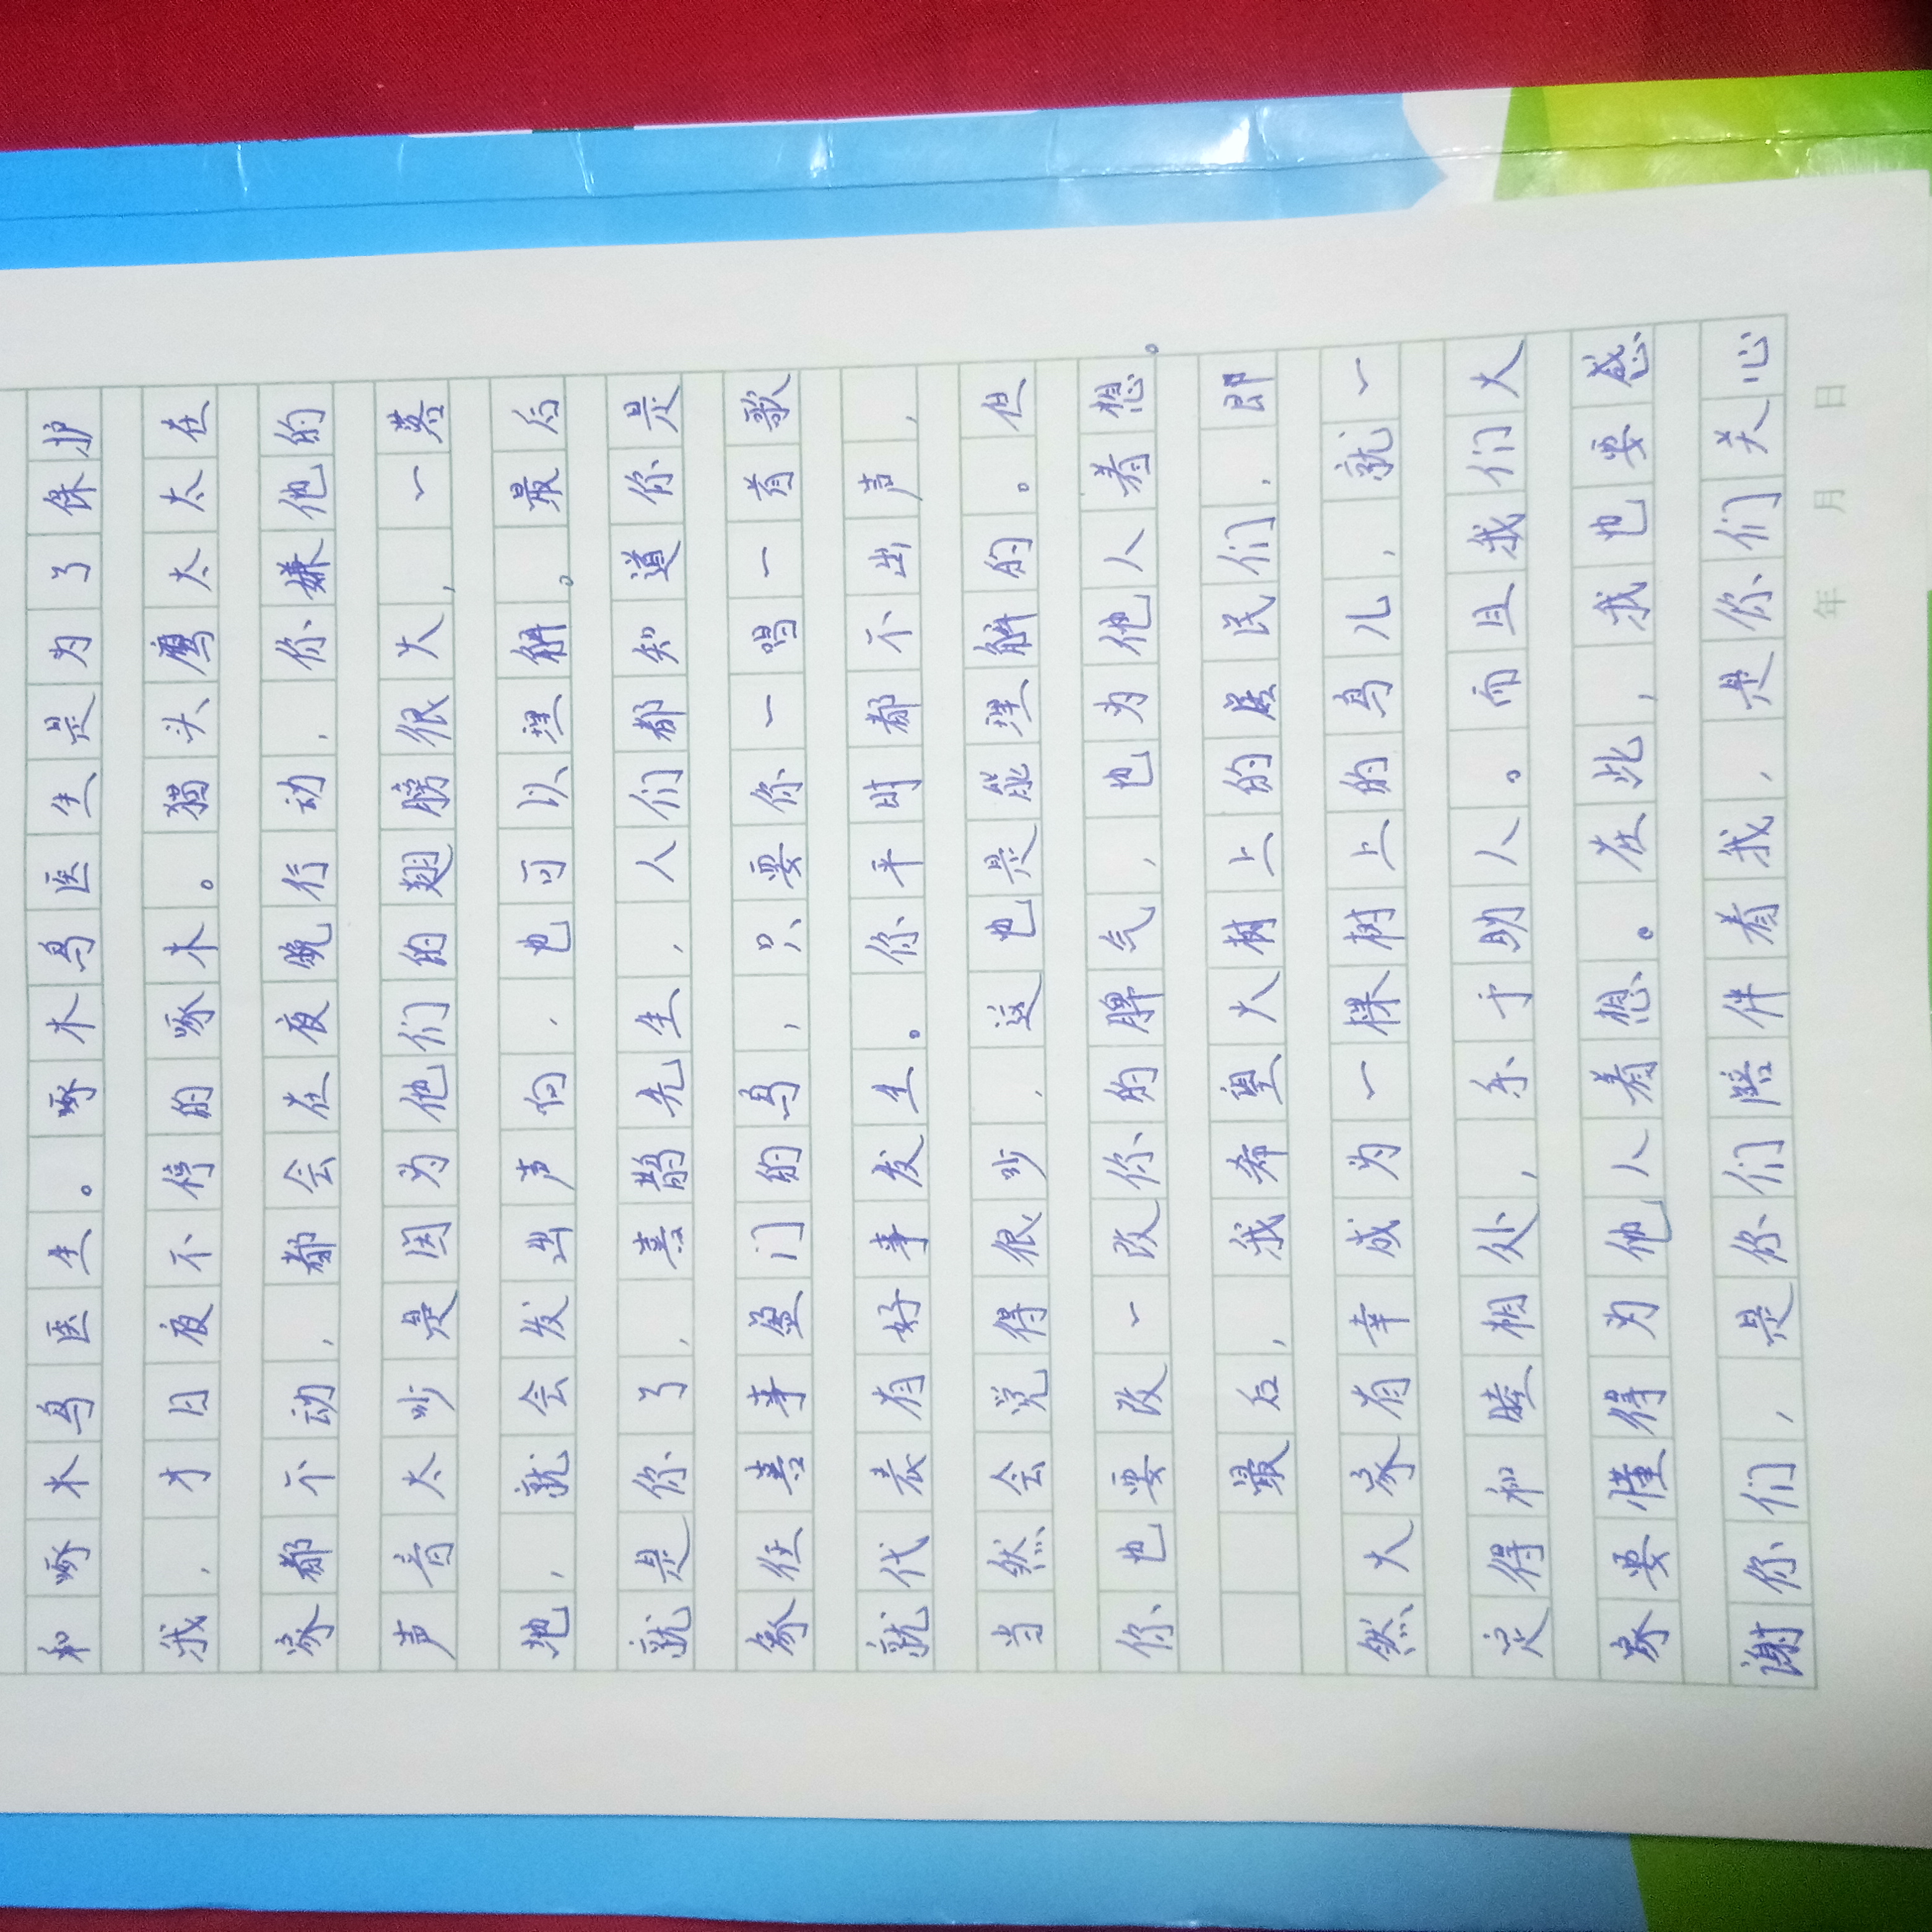 和啄木鸟医生。啄木鸟医生是为了保护
我，才日夜不停的啄木。猫头鹰太太在
家都不动，都会在夜晚行动，你嫌他的
声音太吵是因为他们的翅膀很大，一落
地，就会发出声向，也可以理解。最后
就是你了，喜鹊先生，人们都知道你是
象征喜事盈门的鸟，只要你一唱一首歌
就代表有好事发生。你平时都不出声，
当然会觉得很吵，这也是能理解的。但
你也要改一改你的脾气，也为他人着想。
最后，我希望大树上的居民们，即
然大家有幸成为一棵树上的鸟儿，就一
定得和睦相处，乐于助人。而且我们大
家要懂得为他人着想。在此，我也要感
谢你们，是你们陪伴着我，是你们关心
年 月 日